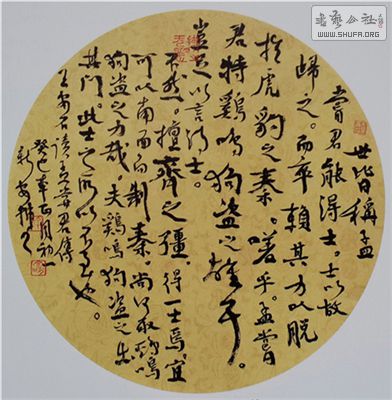 世皆稱孟
嘗君能得士。士以故
歸之。而卒賴其力以脫
於虎豹之秦。嗟乎。孟嘗
君特鷄鳴狗盜之雄耳。
豈足以言得士。
不然。擅齊之彊。得一士焉。宜
可以南面而制秦。尚何取鷄鳴
狗盜之力哉。夫鷄鳴狗盜之出
其門。此士之所以不至也。
王安石讀孟嘗君傳
癸巳年正月初一
新安
WWW.SHUFA.ORG